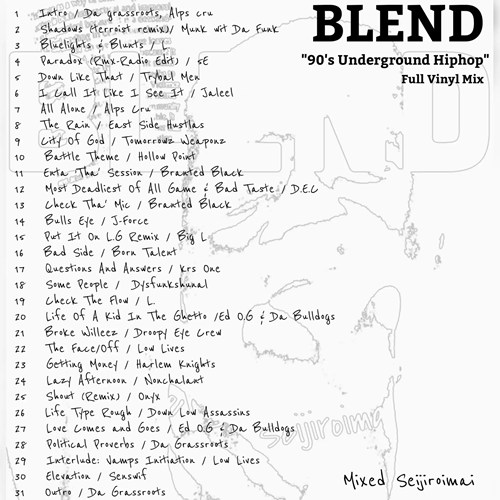 BLEND
"90's Underground Hiphop"
Full Vinyl Mix
1 Intro / Da grassroots, Alps cru
2 Shadows (terroist remix)/ Munk wit Da Funk
3 Bluelights & Blunts / L
4 Paradox (Rmx-Radio Edit) / 5E
5 Down Like That / Trybal Men
6 I Call It Like I See It / Jaleel
7 All Alone / Alps Cru
8 The Rain / East Side Hustlas
9 City Of God / Tomorrowz Weaponz
10 Battle Theme / Hollow Point
11 Enta 'Tha' Session / Branted Black
12 Most Deadliest Of All Game & Bad Taste / D.E.C
13 Check Tha' Mic / Branted Black
14 Bulls Eye / J-Force
15 Put It On L.G Remix / Big L
16 Bad Side / Born Talent
17 Questions And Answers / krs One
18 Some People / Dysfunkshunal
19 Check The Flow / L.
20 Life Of A Kid In The Ghetto /Ed O.G & Da Bulldogs
21 Broke Willeez / Droopy Eye Crew
22 The Face/Off / Low Lives
23 Getting Money / Harlem Knights
24 Lazy Afternoon / Nonchalant
25 Shout (Remix) / Onyx
26 Life Type Rough / Down Low Assassins
27 Love Comes and Goes / Ed O.G & Da Bulldogs
28 Political Proverbs / Da Grassroots
29 Interlude: Vamps Initiation / Low Lives
30 Elevation / Senswif
31 Outro / Da Grassroots
Seijiroimai
Mixed Seijiroimai